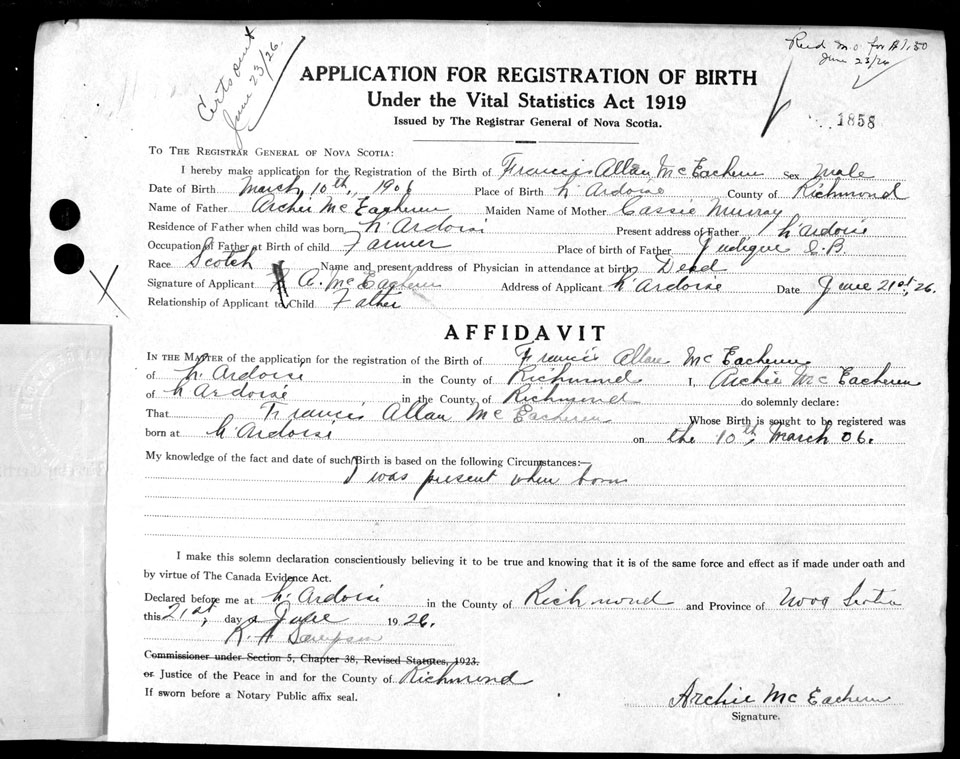 Certs out June 23/26.
Recd M.O. for $1.50
June 23/26
APPLICATION FOR REGISTRATION OF BIRTH
Under the Vital Statistics Act 1919
Issued by The Registrar General of Nova Scotia.
1858
To The Registrar General of Nova Scotia:
I hereby make application for the Registration of the Birth of Francis Allan McEachern Sex Male
Date of Birth March 10th, 1906 Place of Birth L'Ardoise County of Richmond
Name of Father Archie McEachern Maiden Name of Mother Cassie Murray
Residence of Father when child was born L'Ardoise Present address of Father L'Ardoise
Occupation of Father at Birth of child Farmer Place of birth of Father Judique C.B.
Race Scotch Name and present address of Physician in attendance at birth Dead
Signature of Applicant A. McEachern Address of Applicant L'Ardoise Date June 21st, 26.
Relationship of Applicant to Child Father
AFFIDAVIT
In the Matter of the application for the registration of the Birth of Francis Allan McEachern
of L'Ardoise in the County of Richmond I, Archie McEachern
of L'Ardoise in the County of Richmond do solemnly declare:
That Francis Allan McEachern Whose Birth is sought to be registered was
born at L'Ardoise on the 10th, March 06.
My knowledge of the fact and date of such Birth is based on the following Circumstances:—
I was present when born
I make this solemn declaration conscientiously believing it to be true and knowing that it is of the same force and effect as if made under oath and
by virtue of The Canada Evidence Act.
Declared before me at L'Ardoise in the County of Richmond and Province of Nova Scotia
this 21st, day of June 1926.
Sampson
Commissioner under Section 5, Chapter 38, Revised Statutes, 1923.
or Justice of the Peace in and for the County of Richmond
If sworn before a Notary Public affix seal.
Archie McEachern
Signature.